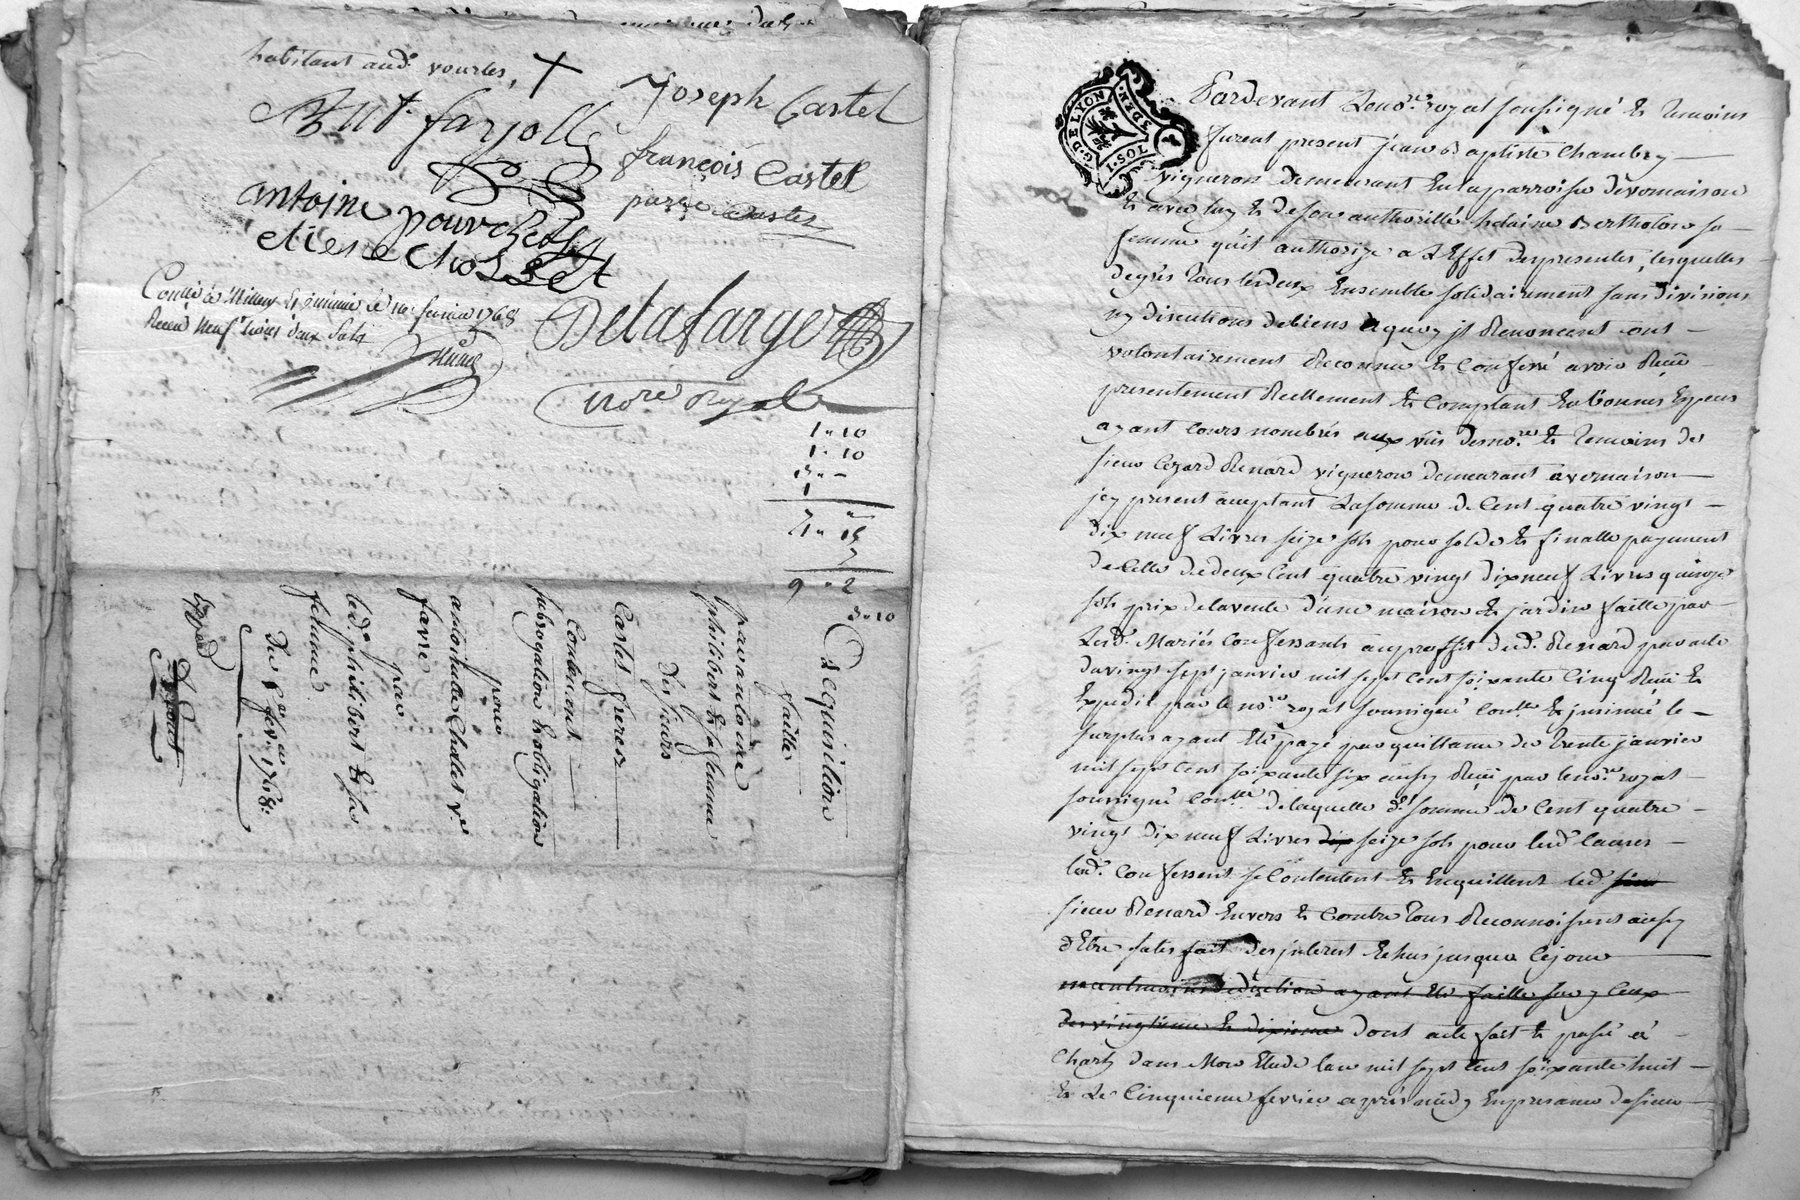 habitant aud. vourles,
Joseph Castel
Ant. farjolle
françois Castel
pierre Castel
antoine pourchol
etiene Chosset
Conllé à Millery & insinué le 10 fevrier 1768
Receu neuf livres deux sols
Delafarge
No.re royal
1 " 10
1 " 10
3 " -
1
7 " "
1 " 15
7
9 " 2
3 " 10
Aequisition
faitte
par antoine
philibert & sa femme
des sieurs
Castel freres
Contenent
subrogation & obligation
pour
antoinette Chollet v.e
favre
par
led. philibert & sa
femme
Du 1.er fev.er 1768.
Exped.
G. DE LYON
1. SOL. 3. DEN.
Pardevant Le no.re royal soussigné & temoins
furent present Jean Baptiste Chambry
vigneron demeurant en la parroisse de vernaison
& avec luy & de son authorité helaine Bertholon sa
femme qu'il authorize a L'Effet des presentes, lesquelles
de grés tous les deux Ensemble solidairement sans division
ny discutions de biens a quoy ils Renoncent ont
volontairement Reconnu & Confessé avoir Receu
presentement Reellement & Comptant En bonnes Especes
ayant cours nombrés aux vûs des no.re & temoins de
sieur Cezard Renard vigneron demeurant à vernaison
icy present acceptant La somme de Cent quatre vingt
dix neuf Livres seize sols pour solde & finalle payement
de Celle de deux Cent quatre vingt dix neuf Livres quinze
sols prix de la vente d'une maison & jardin faitte par
Lesd. Mariés Confessants au proffit dud. Renard par acte
du vingt sept janvier mil sept cent soixante Cinq Receu &
Expedié par le no.re royal soussigné Conllé & insinué le
surplus ayant Eté payé par quittance du trente janvier
mil sept Cent soixante six aussy Receu par le no.re royal
soussigné Conllé de laquelle d. somme de Cent quatre
vingt dix neuf Livres dix seize sols pour lesd. Causes
lesd. Confessent se Contentent & En quittent led. sieur
sieur Renard Envers & Contre tous Reconnoissent aussy
d'Etre satisfait des interest Echus jusqu'a Ce jour
deduction ayant eté faitte sur Ceux
des vingtieme & dixieme dont acte fait & passé à
Charly dans Mon Etude L'an mil sept Cent soixante huit
& Le Cinquieme fevrier après midy En presance de sieur